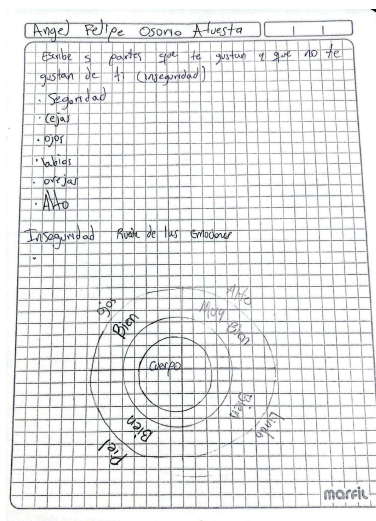 Angel Felipe Osorio Atuesta
Escribe 5 partes que te gustan y que no te
gustan de ti (inseguridad)
· Seguridad
· Cejas
· Ojos
· labios
· orejas
· Alto
Inseguridad Rueda de las emociones
Alto
Muy Bien
Ojos
Bien
Cuerpo
Bien
Lindo
Bien
Piel
marfil